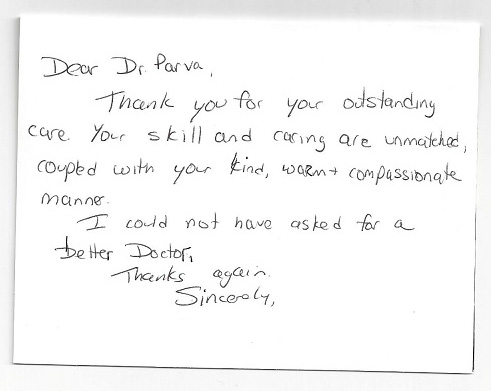 Dear Dr. Parva,
Thank you for your outstanding
care. Your skill and caring are unmatched,
coupled with your kind, warm + compassionate
manner.
I could not have asked for a
better Doctor,
Thanks again.
Sincerely,